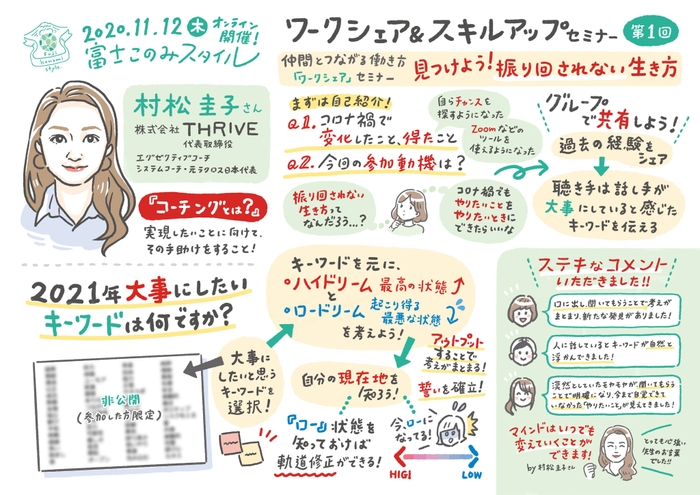 2020.11.12 木 オンライン開催!
富士このみスタイル
ワークシェア&スキルアップセミナー 第1回
仲間とつながる働き方
「ワークシェア」セミナー
見つけよう!振り回されない生き方
村松 圭子さん
株式会社 THRIVE
代表取締役
エグゼクティブコーチ
システムコーチ・元ラクロス日本代表
『コーチングとは?』
実現したいことに向けて、
その手助けをすること!
まずは自己紹介!
Q1.コロナ禍で
変化したこと、得たこと
Q2.今回の参加動機は?
自らチャンスを
探すようになった
Zoomなどの
ツールを
使えるようになった
振り回されない
生き方って
なんだろう…?
コロナ禍でも
やりたいことを
やりたいときに
できたらいいな
グループ
で共有しよう!
過去の経験を
シェア
聴き手は話し手が
大事にしていると感じた
キーワードを伝える
2021年大事にしたい
キーワードは何ですか?
非公開
(参加した方限定)
大事に
したいと思う
キーワードを
選択!
キーワードを元に、
・ハイドリーム 最高の状態
と
・ロードリーム 起こり得る
最悪な状態
を考えよう!
アウトプット
することで
考えがまとまる!
誓いを確立!
自分の現在地を
知ろう!
『ロー』状態を
知っておけば
軌道修正ができる!
今、ローに
なってる!
HIGH
LOW
ステキなコメント
いただきました!!
口に出し、聞いてもらうことで考えが
まとまり、新たな発見がありました!
人に話しているとキーワードが自然と
浮かんできました!
漠然としていたモヤモヤが、聞いてもらう
ことで明確になり、今まで自覚できて
いなかった「やりたいこと」が見えてきました!
マインドはいつでも
変えていくことが
できます!
by 村松圭子さん
とっても心強い
先生のお言葉
でした!!